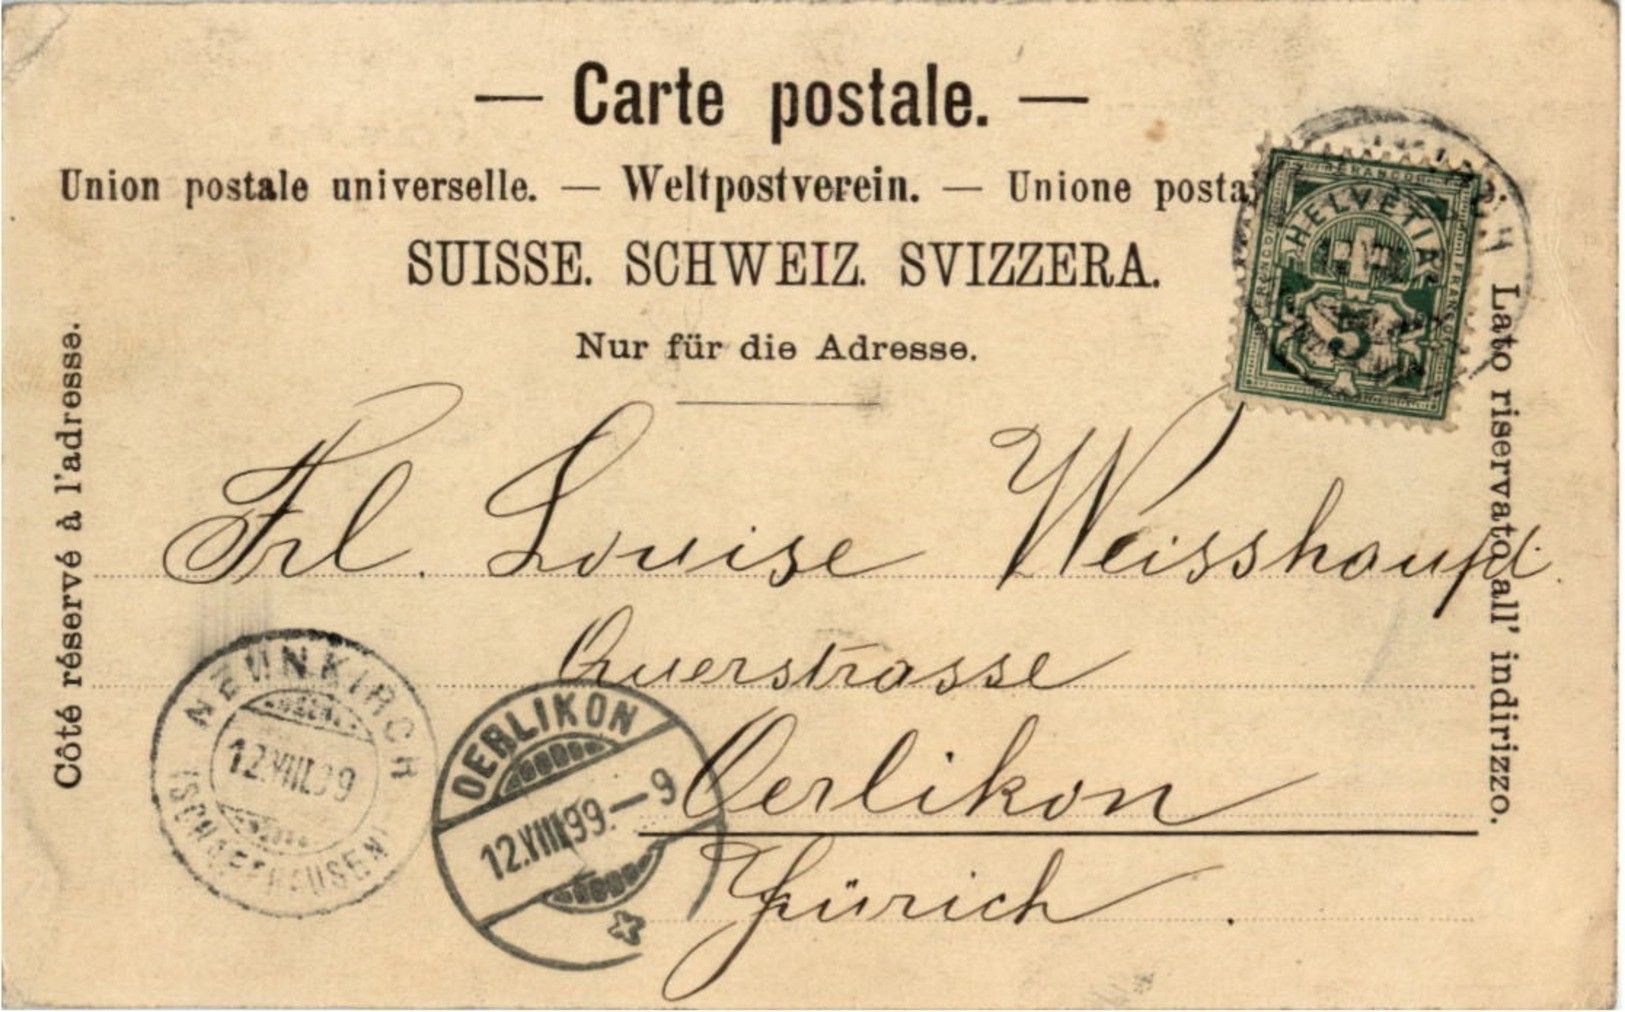 — Carte postale. —
Union postale universelle. — Weltpostverein. — Unione posta
SUISSE. SCHWEIZ. SVIZZERA.
Nur für die Adresse.
Côté réservé à l'adresse.
Lato riservato all' indirizzo.
FRANCO
HELVETIA
5
Frl. Louise Weisshaupt.
Querstrasse
Oerlikon
Zürich.
NEUNKIRCH
12.VIII.99
(SCHAFFHAUSEN)
OERLIKON
12.VIII.99.—9